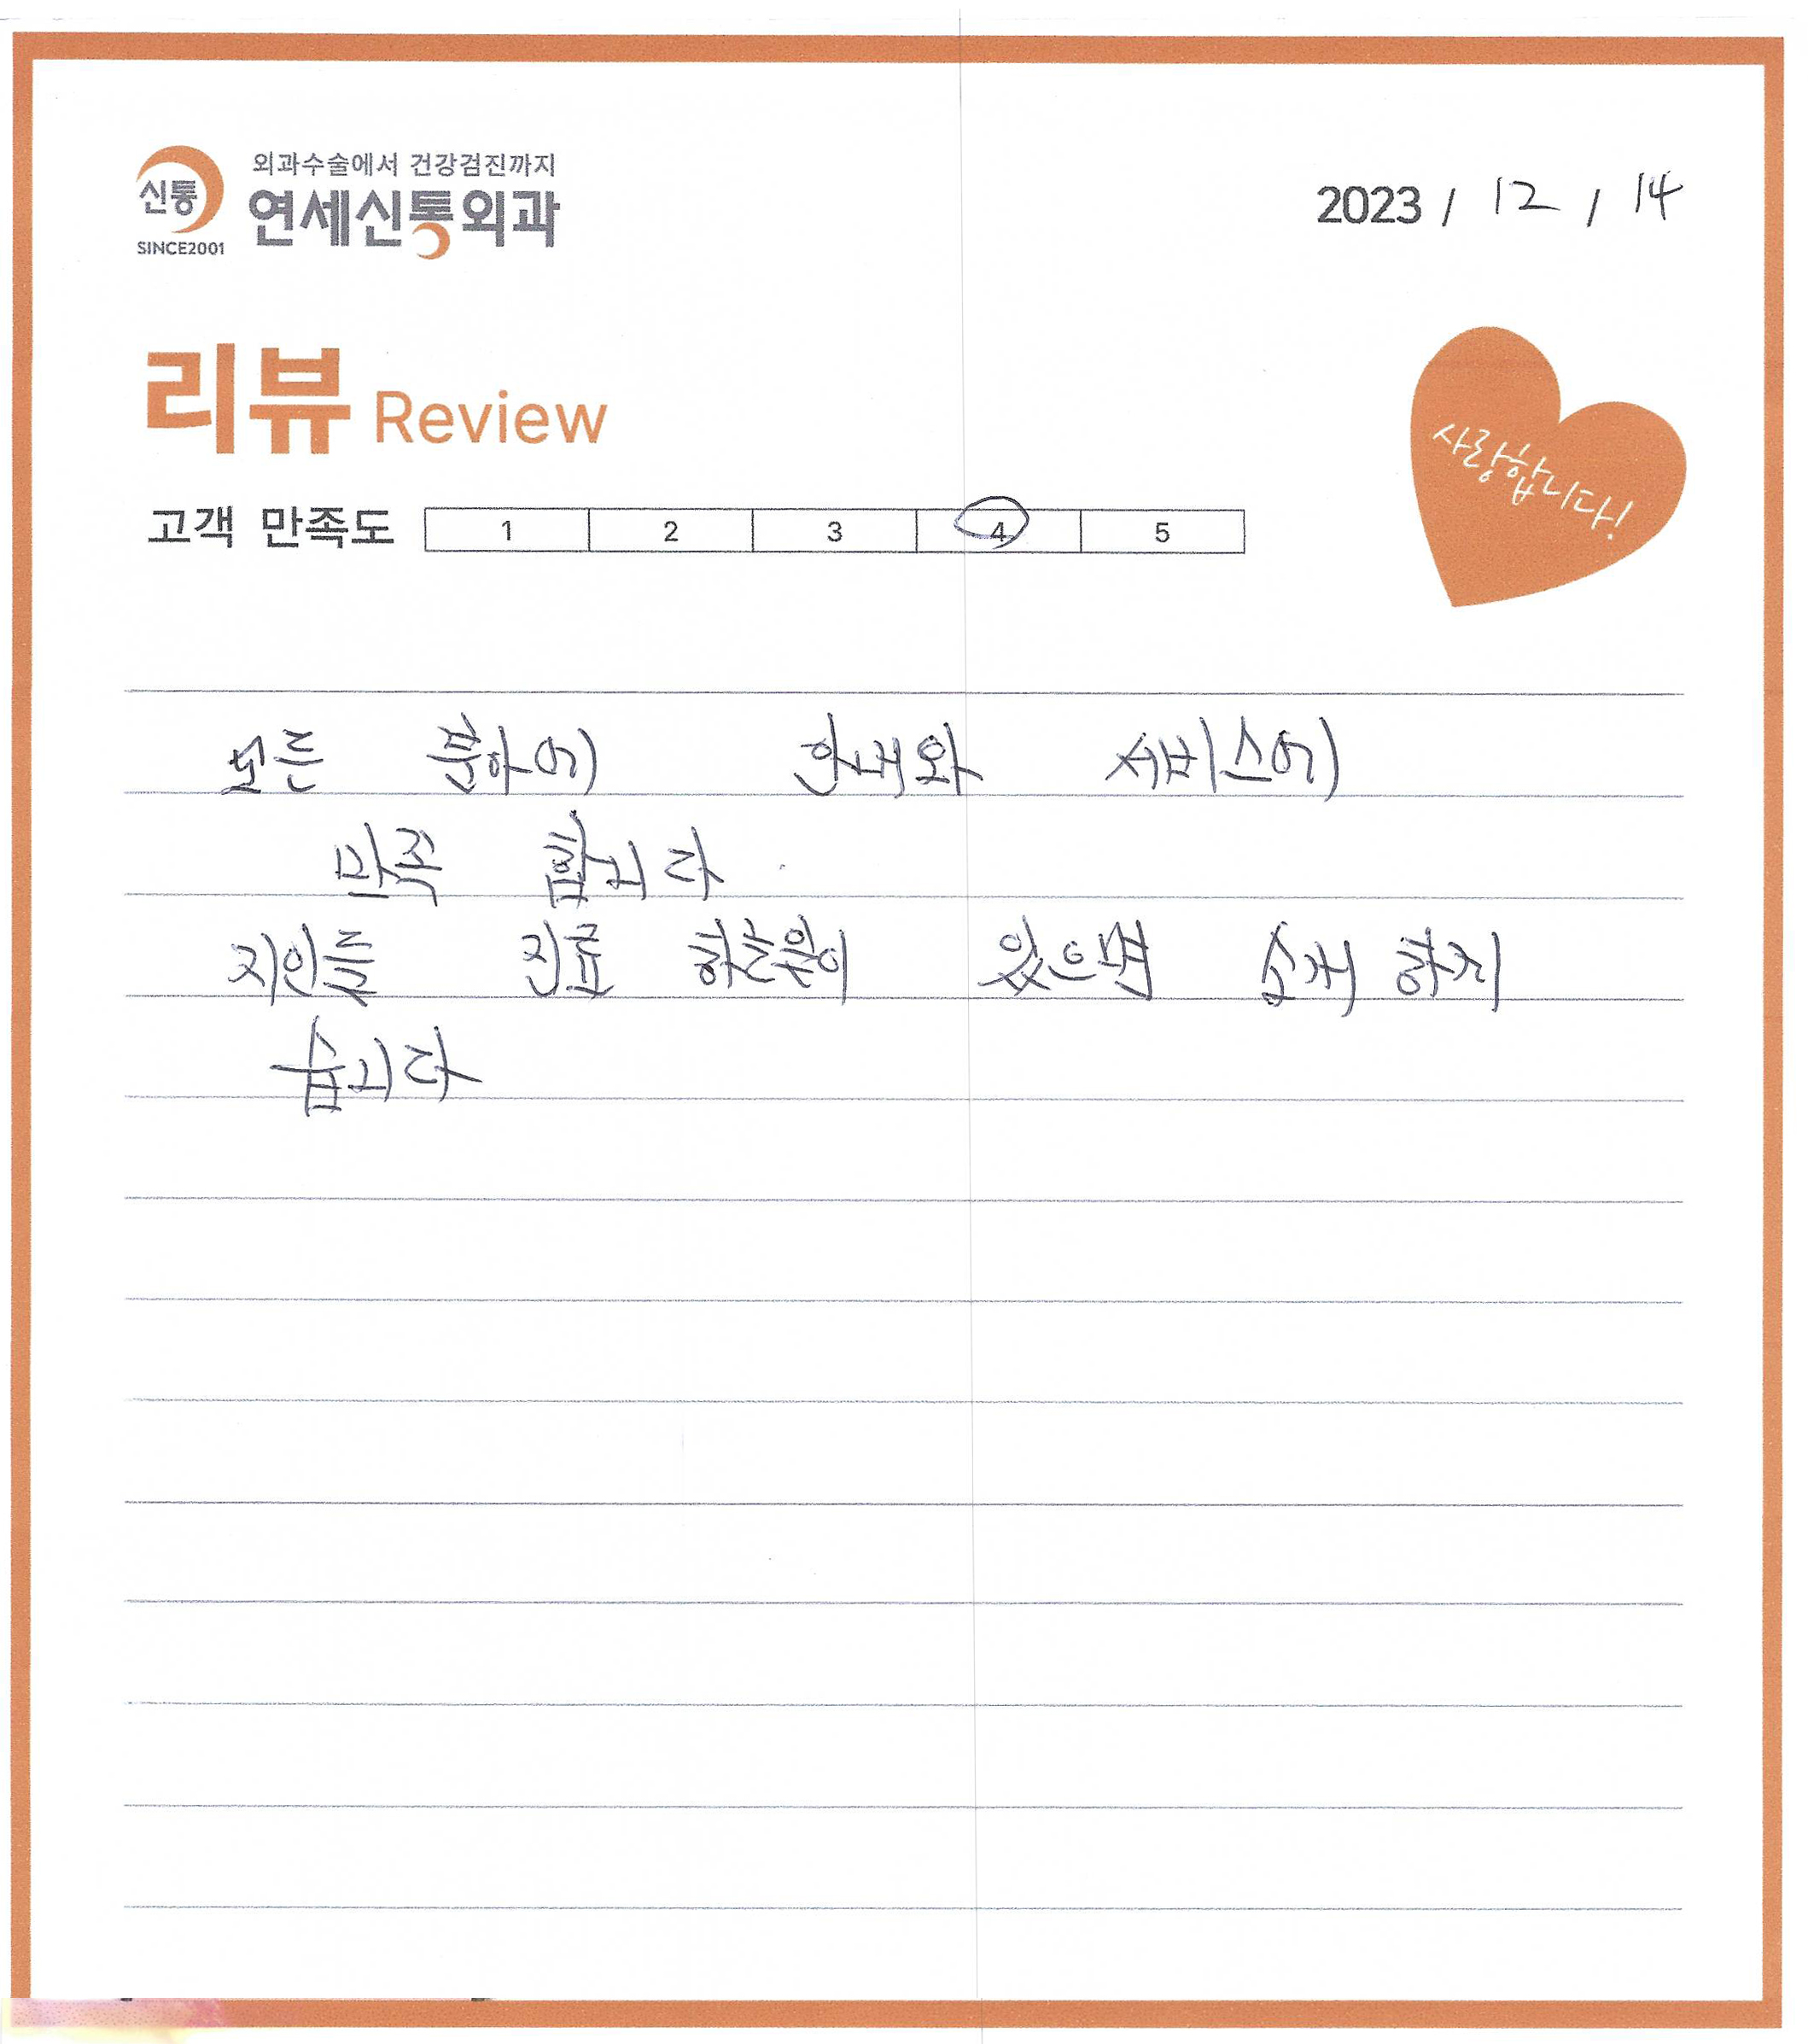 외과수술에서 건강검진까지
신통
연세신통외과
SINCE2001
2023 / 12 / 14
리뷰 Review
사랑합니다!
고객 만족도 1 2 3 4 5
모든 분야에 안내와 서비스에
만족 합니다
지인들 진료 하는분이 있으면 소개 하지
습니다